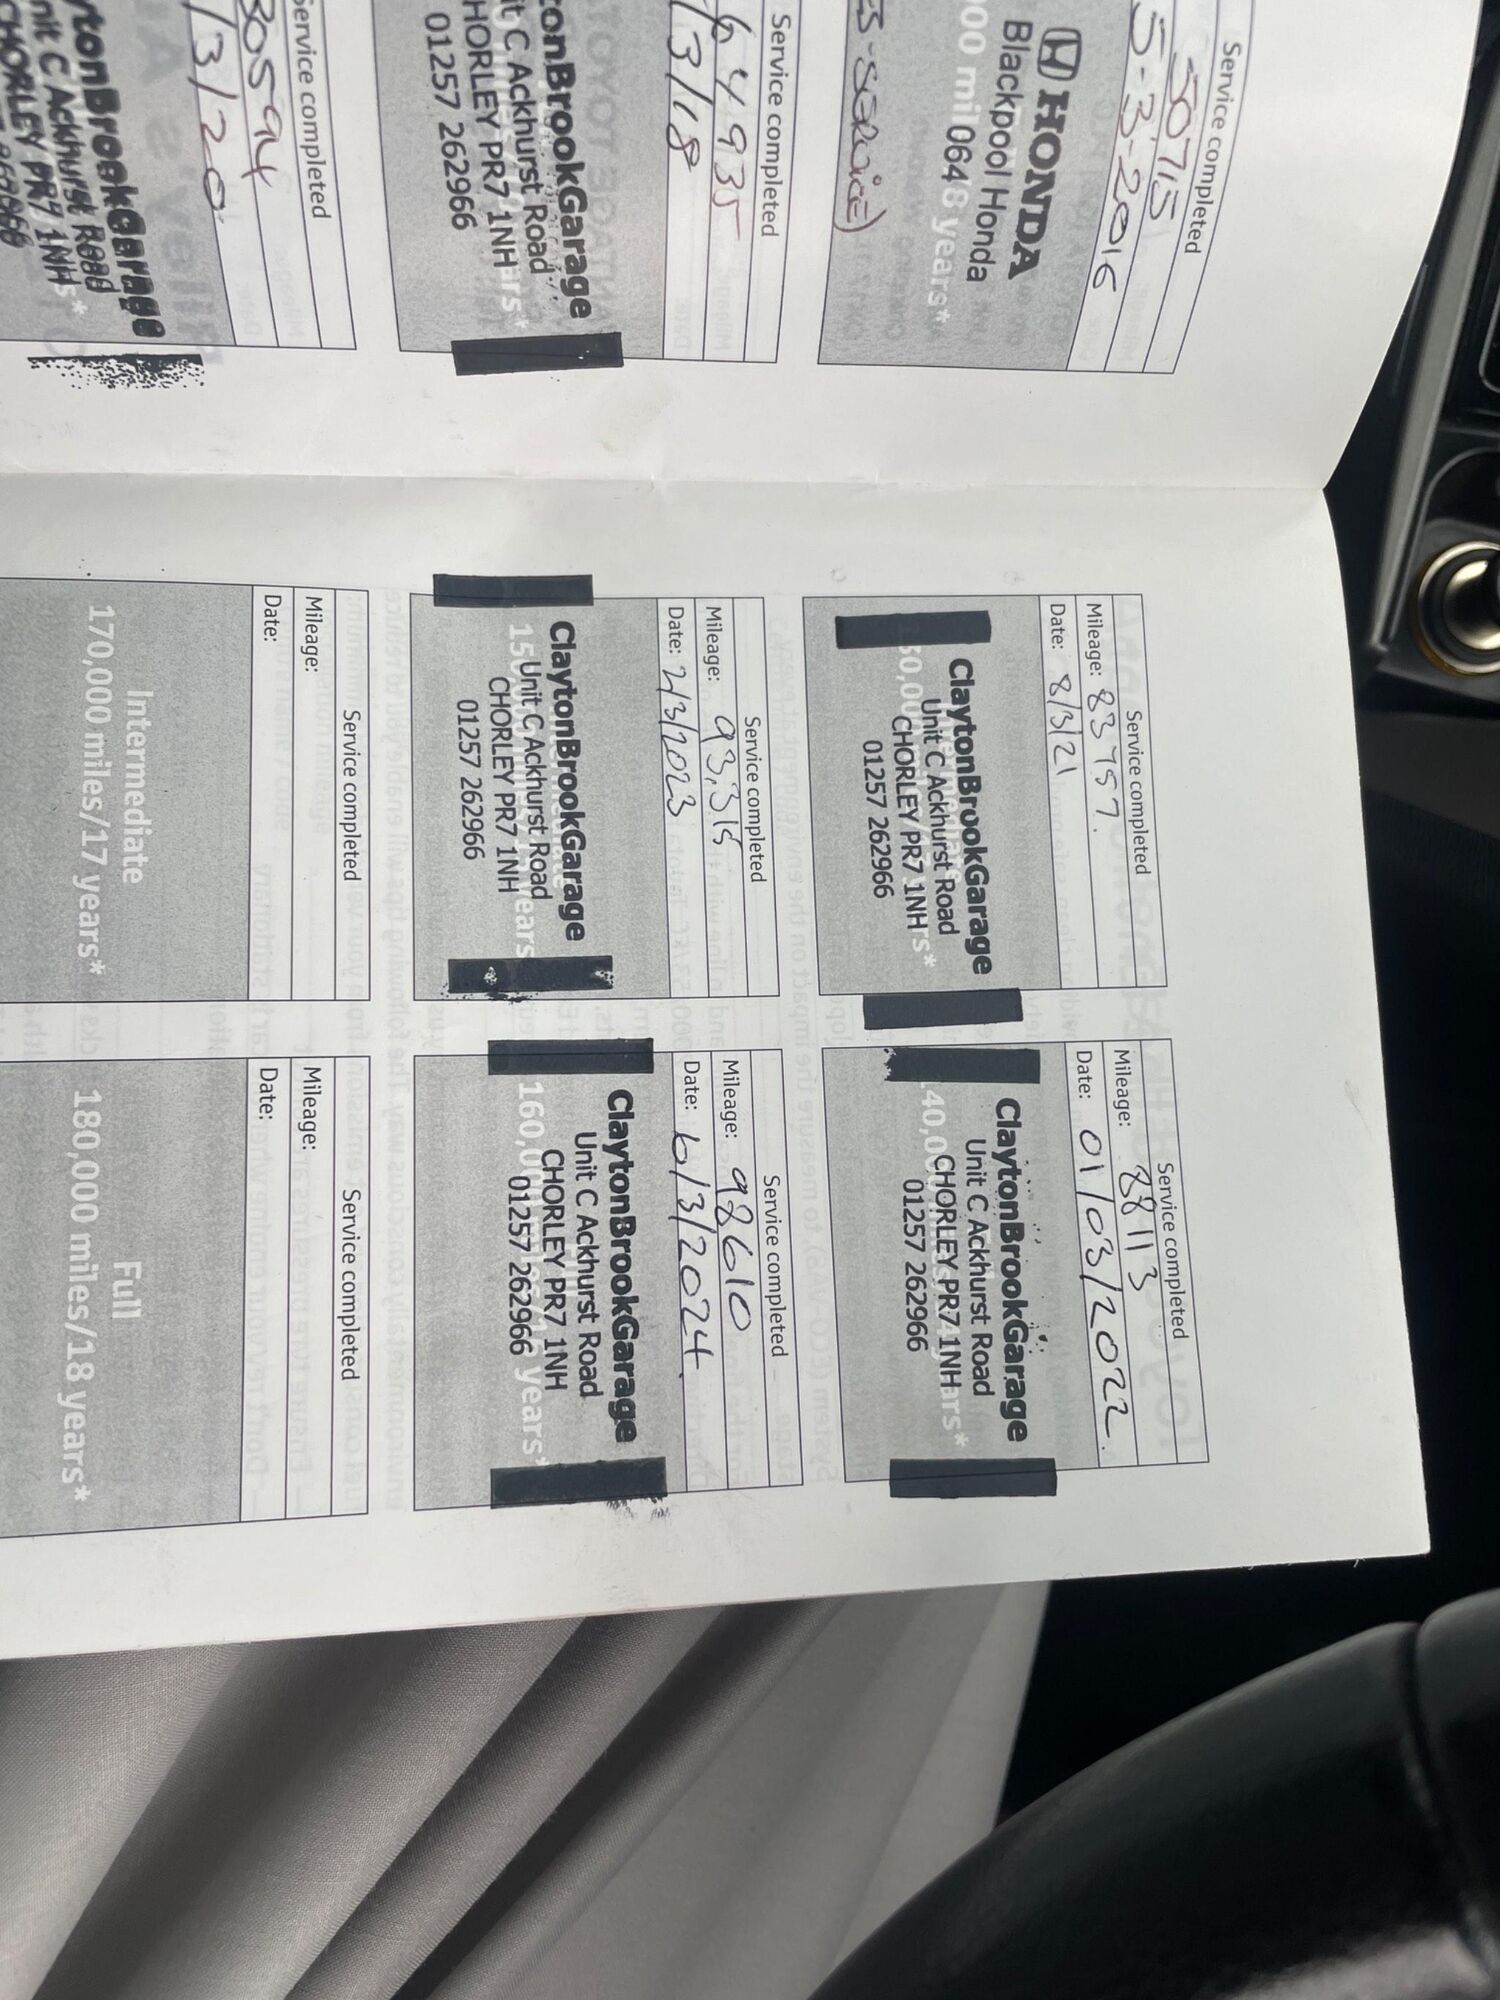 Service completed
50715
5-3-2016
HONDA
Blackpool Honda
064
8 years*
Service completed
64935
/3/18
tonBrookGarage
it C Ackhurst Road
HORLEY PR7 1NH
01257 262966
Service completed
80594
/3/20
ytonBrookGarage
nit C Ackhurst Road
CHORLEY PR7 1NH
Service completed
Mileage: 83757.
Date: 8/3/21
ClaytonBrookGarage
Unit C Ackhurst Road
CHORLEY PR7 1NH
01257 262966
Service completed
Mileage: 88113
Date: 01/03/2022.
ClaytonBrookGarage
Unit C Ackhurst Road
CHORLEY PR7 1NH
01257 262966
Service completed
Mileage: 93,315
Date: 2/3/2023
ClaytonBrookGarage
Unit C Ackhurst Road
CHORLEY PR7 1NH
01257 262966
Service completed
Mileage: 98610
Date: 6/3/2024.
ClaytonBrookGarage
Unit C Ackhurst Road
CHORLEY PR7 1NH
01257 262966
Service completed
Mileage:
Date:
Intermediate
170,000 miles/17 years*
Service completed
Mileage:
Date:
Full
180,000 miles/18 years*